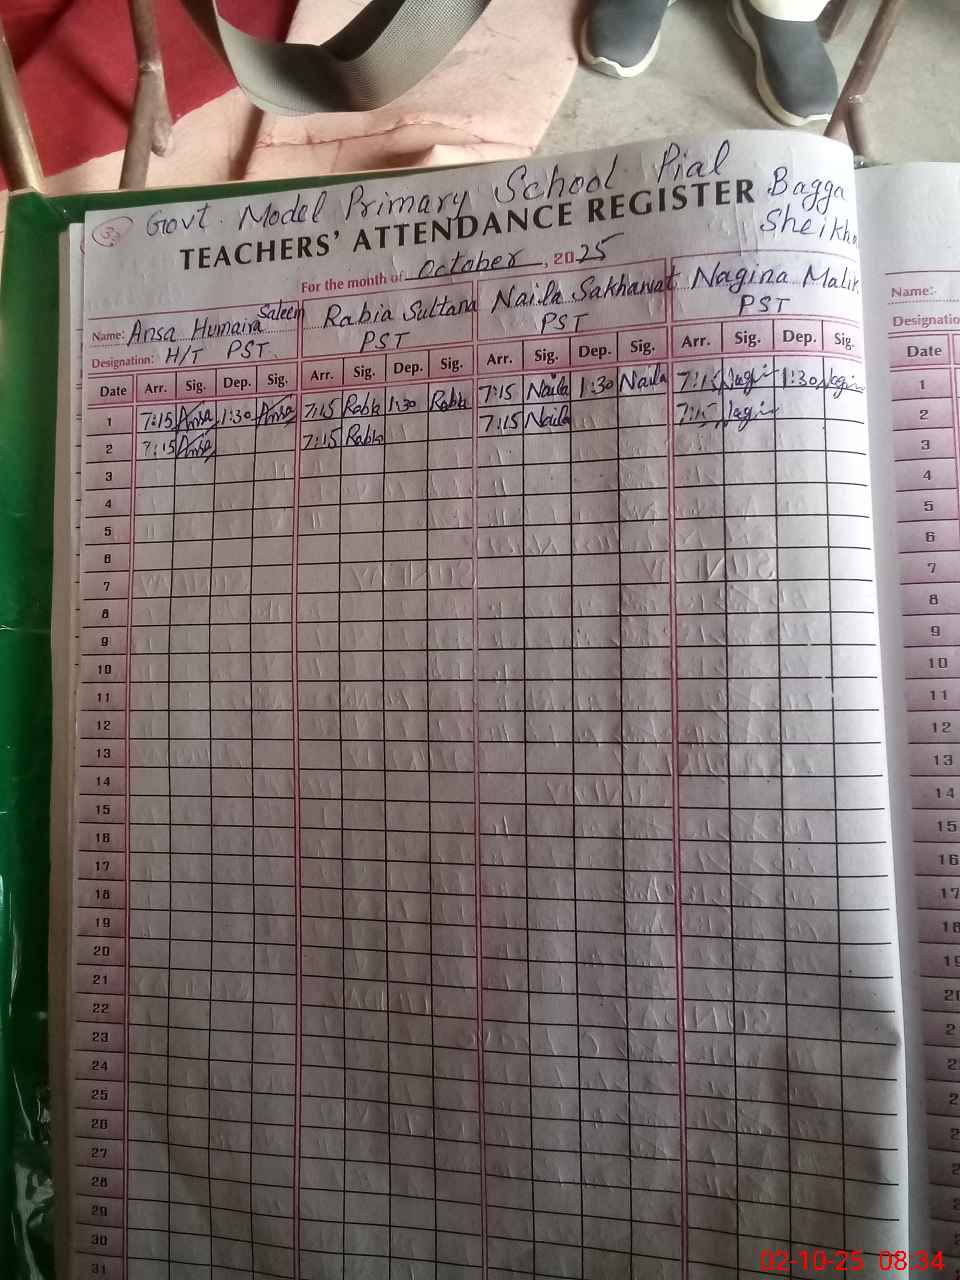 33
Govt. Model Primary School Pial Bagga
TEACHERS' ATTENDANCE REGISTER Sheikha
For the month of October, 2025
Name: Ansa Humaira Saleem Rabia Sultana Naila Sakhawat Nagina Malik
Designation: H/T PST. PST PST PST
Date Arr. Sig. Dep. Sig. Arr. Sig. Dep. Sig. Arr. Sig. Dep. Sig. Arr. Sig. Dep. Sig.
1 7:15 Ansa 1:30 Ansa 7:15 Rabia 1:30 Rabia 7:15 Naila 1:30 Naila 7:15 1:30
2 7:15 Ansa 7:15 Rabia 7:15 Naila 7:15
3
4
5
6
7
8
9
10
11
12
13
14
15
16
17
18
19
20
21
22
23
24
25
26
27
28
29
30
31
Name:-
Designatio
Date
1
2
3
4
5
6
7
8
9
10
11
12
13
14
15
16
17
18
19
02-10-25 08:34